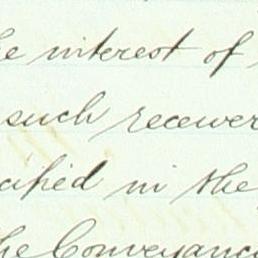 he interest of
such receiver
cified in the
he Conveyanc